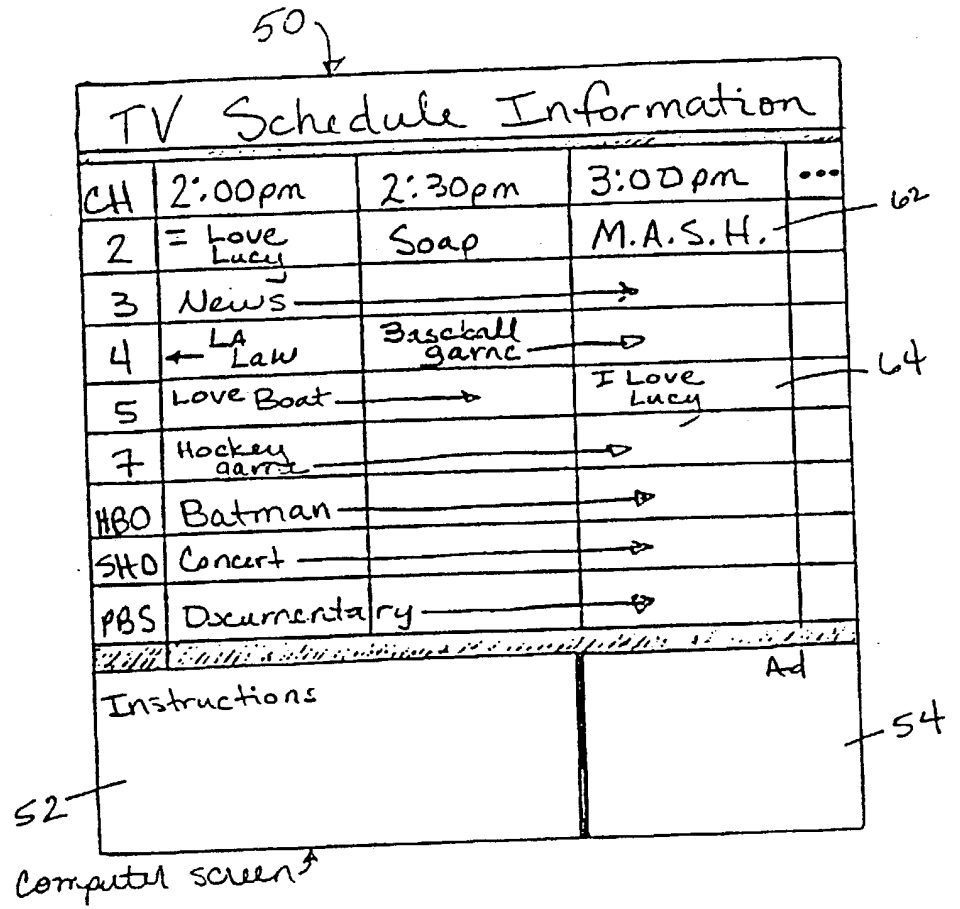 50
TV Schedule Information
CH 2:00pm 2:30pm 3:00pm •••
62
2 I Love Soap M.A.S.H.
Lucy
3 News
4 LA Baseball
Law game
64
5 Love Boat I Love
Lucy
7 Hockey
game
HBO Batman
SHO Concert
PBS Documentary
Instructions Ad
54
52
Computer screen